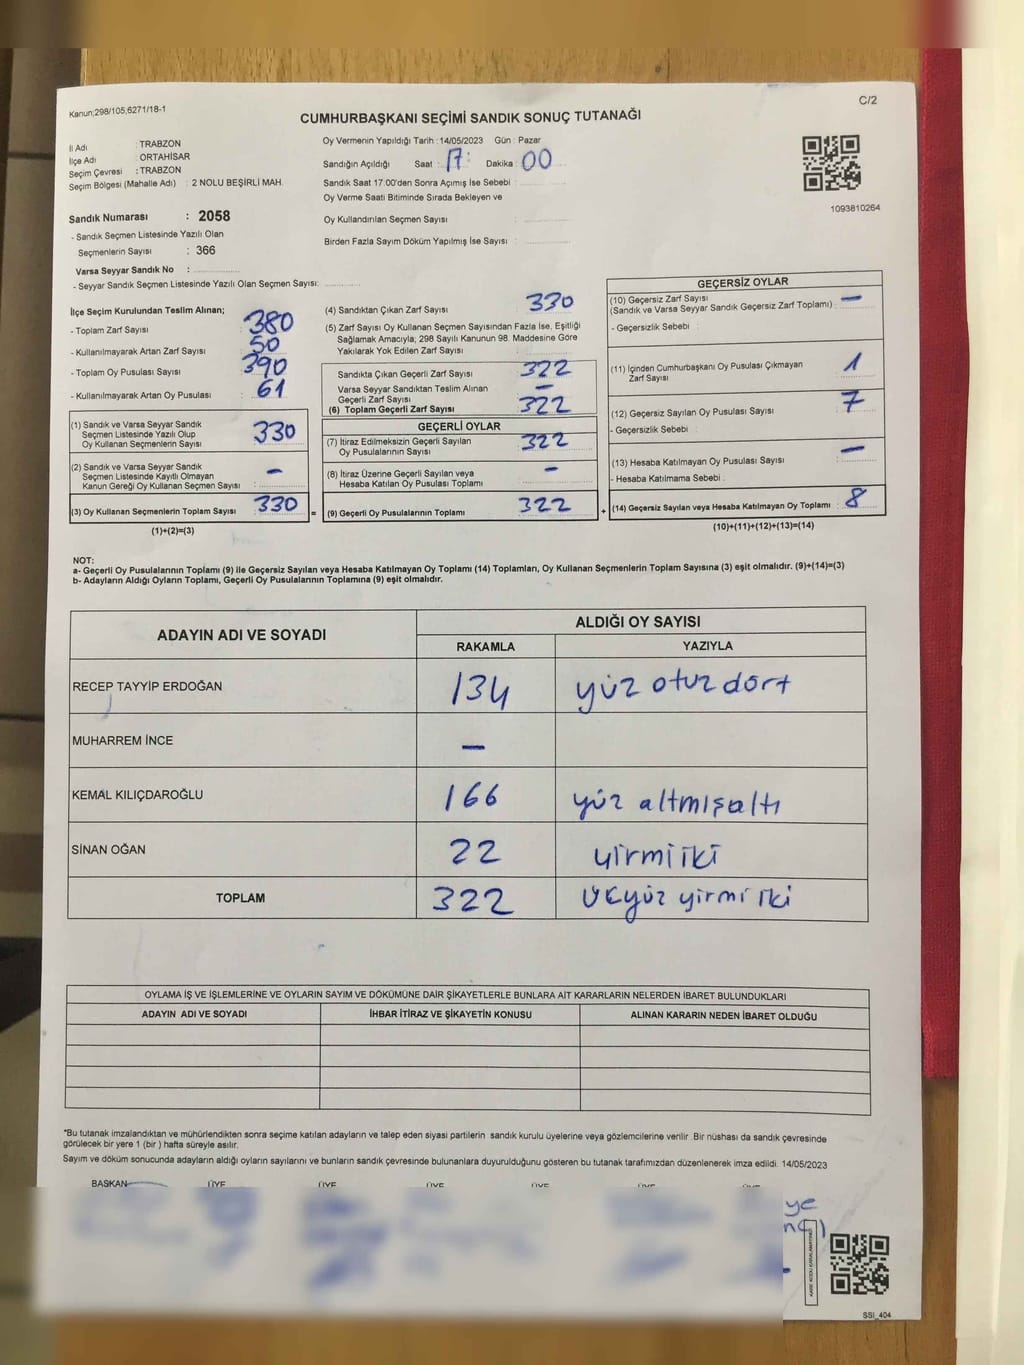 Kanun;298/105,6271/18-1
C/2
CUMHURBAŞKANI SEÇİMİ SANDIK SONUÇ TUTANAĞI
İl Adı : TRABZON
İlçe Adı : ORTAHİSAR
Seçim Çevresi : TRABZON
Seçim Bölgesi (Mahalle Adı) : 2 NOLU BEŞİRLİ MAH.
Sandık Numarası : 2058
- Sandık Seçmen Listesinde Yazılı Olan
Seçmenlerin Sayısı : 366
Varsa Seyyar Sandık No :
- Seyyar Sandık Seçmen Listesinde Yazılı Olan Seçmen Sayısı:
Oy Vermenin Yapıldığı Tarih :14/05/2023 Gün : Pazar
Sandığın Açıldığı Saat : 17: Dakika : 00
Sandık Saat 17:00'den Sonra Açımış İse Sebebi :
Oy Verme Saati Bitiminde Sırada Bekleyen ve
Oy Kullandırılan Seçmen Sayısı :
Birden Fazla Sayım Döküm Yapılmış İse Sayısı :
1093810264
İlçe Seçim Kurulundan Teslim Alınan;
- Toplam Zarf Sayısı : 380
- Kullanılmayarak Artan Zarf Sayısı : 50
- Toplam Oy Pusulası Sayısı : 390
- Kullanılmayarak Artan Oy Pusulası : 61
(1) Sandık ve Varsa Seyyar Sandık
Seçmen Listesinde Yazılı Olup
Oy Kullanan Seçmenlerin Sayısı : 330
(2) Sandık ve Varsa Seyyar Sandık
Seçmen Listesinde Kayıtlı Olmayan
Kanun Gereği Oy Kullanan Seçmen Sayısı : –
(3) Oy Kullanan Seçmenlerin Toplam Sayısı : 330
(1)+(2)=(3)
(4) Sandıktan Çıkan Zarf Sayısı : 330
(5) Zarf Sayısı Oy Kullanan Seçmen Sayısından Fazla İse, Eşitliği
Sağlamak Amacıyla; 298 Sayılı Kanunun 98. Maddesine Göre
Yakılarak Yok Edilen Zarf Sayısı :
Sandıkta Çıkan Geçerli Zarf Sayısı : 322
Varsa Seyyar Sandıktan Teslim Alınan
Geçerli Zarf Sayısı : –
(6) Toplam Geçerli Zarf Sayısı : 322
GEÇERLİ OYLAR
(7) İtiraz Edilmeksizin Geçerli Sayılan
Oy Pusulalarının Sayısı : 322
(8) İtiraz Üzerine Geçerli Sayılan veya
Hesaba Katılan Oy Pusulası Toplamı : –
= (9) Geçerli Oy Pusulalarının Toplamı : 322
GEÇERSİZ OYLAR
(10) Geçersiz Zarf Sayısı
(Sandık ve Varsa Seyyar Sandık Geçersiz Zarf Toplamı) : –
- Geçersizlik Sebebi :
(11) İçinden Cumhurbaşkanı Oy Pusulası Çıkmayan
Zarf Sayısı : 1
(12) Geçersiz Sayılan Oy Pusulası Sayısı : 7
- Geçersizlik Sebebi :
(13) Hesaba Katılmayan Oy Pusulası Sayısı : –
- Hesaba Katılmama Sebebi :
+ (14) Geçersiz Sayılan veya Hesaba Katılmayan Oy Toplamı : 8
(10)+(11)+(12)+(13)=(14)
NOT:
a- Geçerli Oy Pusulalarının Toplamı (9) ile Geçersiz Sayılan veya Hesaba Katılmayan Oy Toplamı (14) Toplamları, Oy Kullanan Seçmenlerin Toplam Sayısına (3) eşit olmalıdır. (9)+(14)=(3)
b- Adayların Aldığı Oyların Toplamı, Geçerli Oy Pusulalarının Toplamına (9) eşit olmalıdır.
ADAYIN ADI VE SOYADI
ALDIĞI OY SAYISI
RAKAMLA YAZIYLA
RECEP TAYYİP ERDOĞAN 134 yüz otuz dört
MUHARREM İNCE –
KEMAL KILIÇDAROĞLU 166 yüz altmışaltı
SİNAN OĞAN 22 yirmi iki
TOPLAM 322 Üçyüz yirmi iki
OYLAMA İŞ VE İŞLEMLERİNE VE OYLARIN SAYIM VE DÖKÜMÜNE DAİR ŞİKAYETLERLE BUNLARA AİT KARARLARIN NELERDEN İBARET BULUNDUKLARI
ADAYIN ADI VE SOYADI İHBAR İTİRAZ VE ŞİKAYETİN KONUSU ALINAN KARARIN NEDEN İBARET OLDUĞU
*Bu tutanak imzalandıktan ve mühürlendikten sonra seçime katılan adayların ve talep eden siyasi partilerin sandık kurulu üyelerine veya gözlemcilerine verilir. Bir nüshası da sandık çevresinde
görülecek bir yere 1 (bir ) hafta süreyle asılır.
Sayım ve döküm sonucunda adayların aldığı oyların sayılarını ve bunların sandık çevresinde bulunanlara duyurulduğunu gösteren bu tutanak tarafımızdan düzenlenerek imza edildi. 14/05/2023
BAŞKAN ÜYE ÜYE ÜYE ÜYE ÜYE
ye
SSI_404